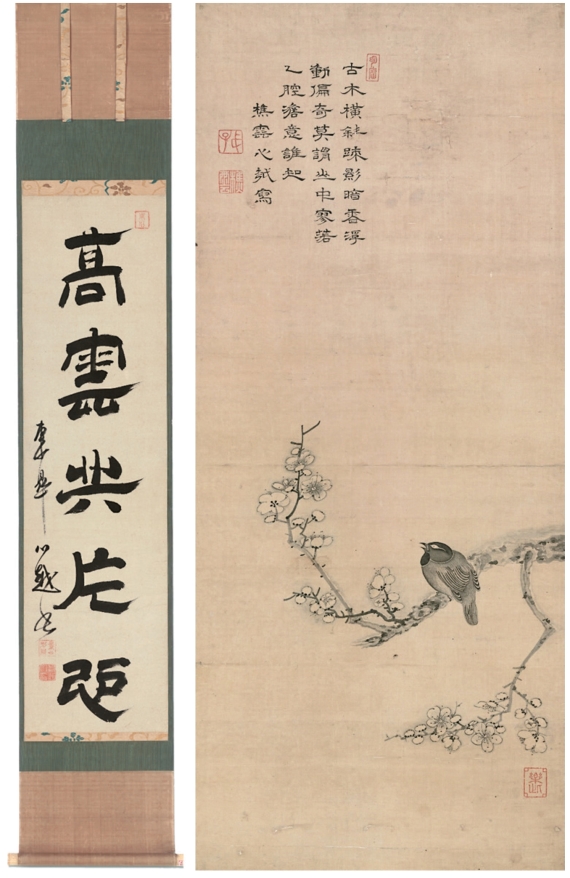 高雲共片
東皐心越書
古木橫斜疎影暗香浮
動偏奇莫謂此中寥落
乙腔澹意誰知
樵雲心越寫